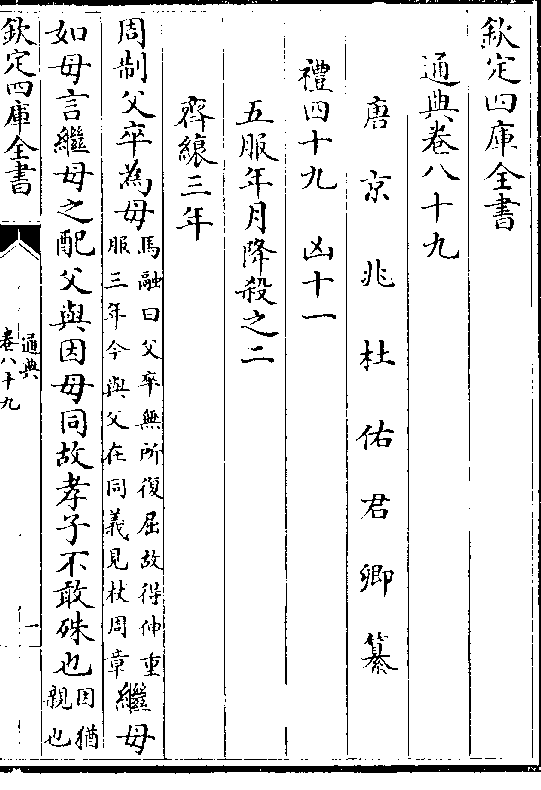 欽定四庫全書
通典卷八十九
唐京兆杜佑君卿纂
禮四十九 凶十一
五服年月降殺之二
齊縗三年
周制父卒為母馬融曰父卒無所復屈故得伸重服三年今與父在同義見杖周章繼母
如母言繼母之配父與因母同故孝子不敢殊也因猶親也
欽定四庫全書
通典
卷八十九
一